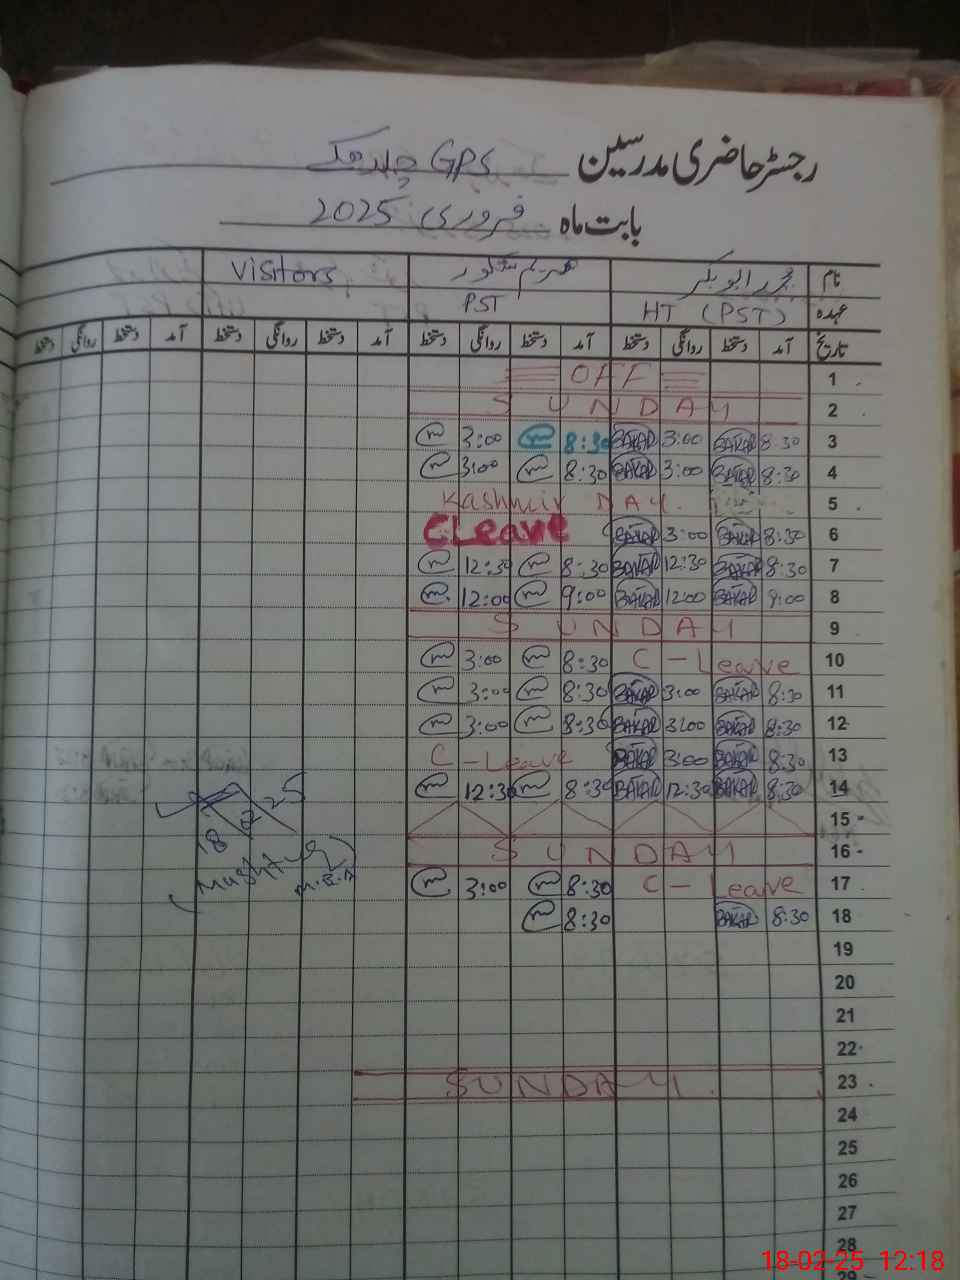 رجسٹر حاضری مدرسین GPS
بابت ماہ فروری 2025
نام محمد ابوبکر Visitors
عہدہ HT (PST) PST
تاریخ آمد دستخط روانگی دستخط آمد دستخط روانگی دستخط آمد دستخط روانگی دستخط آمد دستخط روانگی دستخط
1 OFF
2 SUNDAY
3 8:30 BAKAR 3:00 BAKAR 8:30 3:00
4 8:30 BAKAR 3:00 BAKAR 8:30 3:00
5 Kashmir DAY
6 8:30 BAKAR 3:00 BAKAR CLeave
7 8:30 BAKAR 12:30 BAKAR 8:30 12:30
8 9:00 BAKAR 12:00 BAKAR 9:00 12:00
9 SUNDAY
10 C-Leave 8:30 3:00
11 8:30 BAKAR 3:00 BAKAR 8:30 3:00
12 8:30 BAKAR 3:00 BAKAR 8:30 3:00
13 8:30 BAKAR 3:00 BAKAR C-Leave
14 8:30 BAKAR 12:30 BAKAR 8:30 12:30
15
16 SUNDAY
17 C-Leave 8:30 3:00
18 8:30 BAKAR 8:30
18 2 25
19
20
21
22
23 SUNDAY
24
25
26
27
28
29
18-02-25 12:18